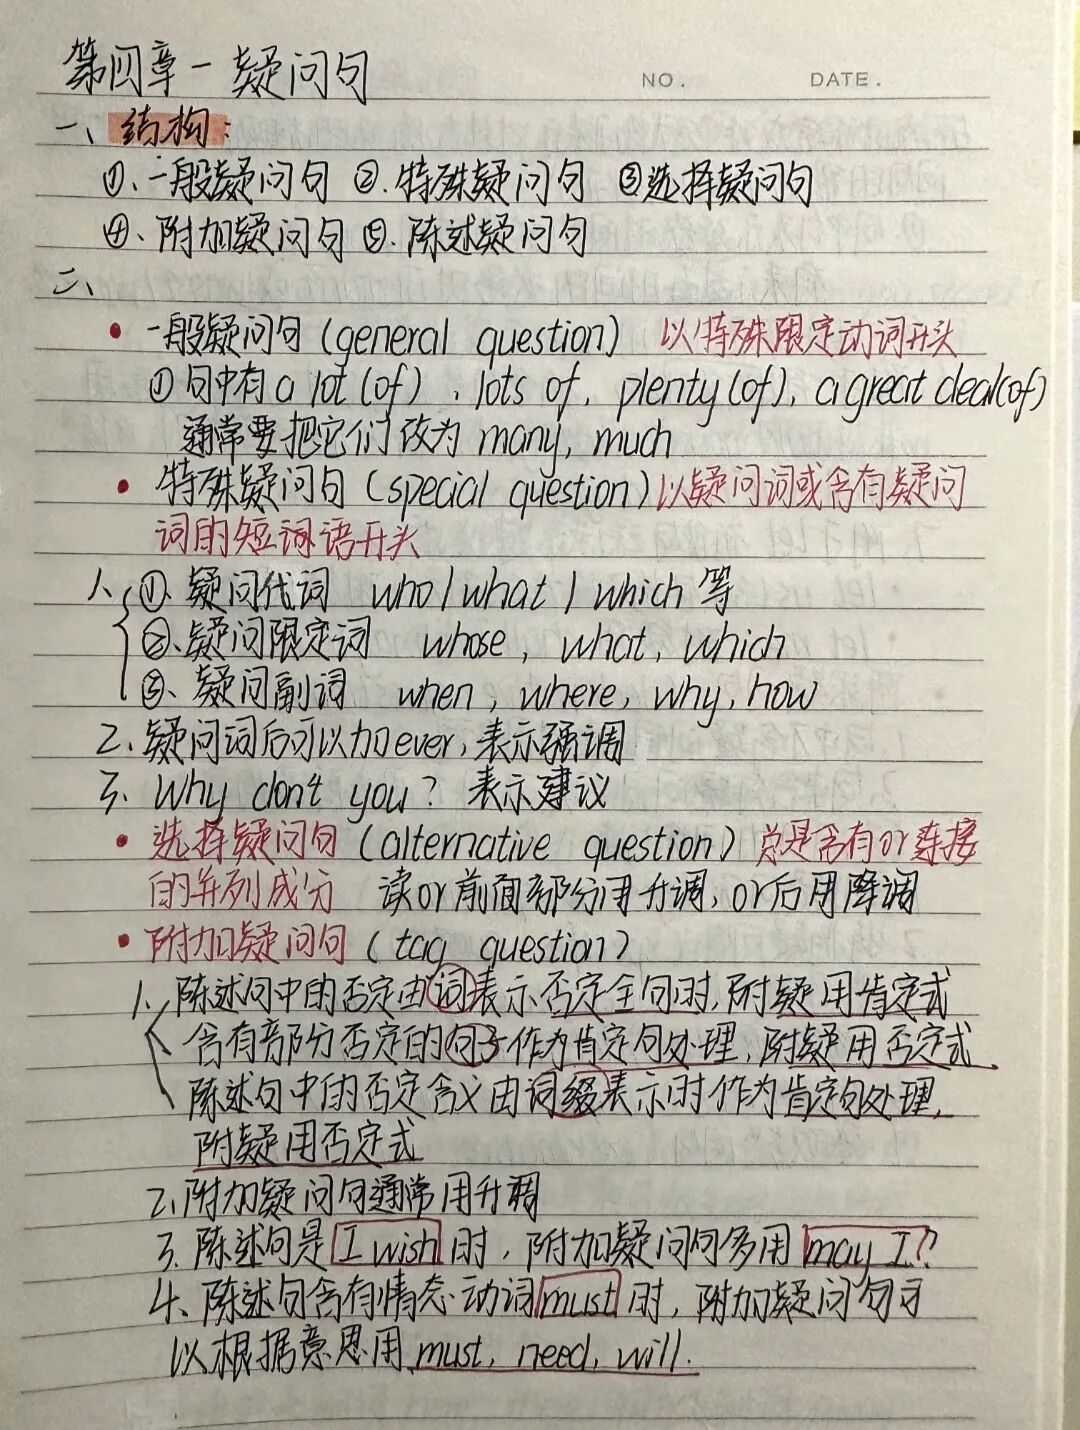 第四章－疑问句
NO. DATE.
一、结构：
①、一般疑问句 ②.特殊疑问句 ③选择疑问句
④、附加疑问句 ⑤.陈述疑问句
二、
• 一般疑问句(general question) 以特殊限定动词开头
①句中有a lot(of)、lots of, plenty(of), a great deal(of)
通常要把它们改为 many, much
• 特殊疑问句(special question)以疑问词或含有疑问
词的短词语开头
1、①、疑问代词 who/what/which等
②、疑问限定词 whose, what, which
③、疑问副词 when, where, why, how
2、疑问词后可以加ever,表示强调
3、Why don't you? 表示建议
• 选择疑问句(alternative question)总是含有or连接
的并列成分 读or前面部分用升调,or后用降调
• 附加疑问句(tag question)
1、陈述句中的否定由词表示否定全句时,附疑用肯定式
含有部分否定的句子作为肯定句处理,附疑用否定式
陈述句中的否定含义由词缀表示时作为肯定句处理,
附疑用否定式
2、附加疑问句通常用升调
3、陈述句是I wish时,附加疑问句多用may I?
4、陈述句含有情态动词must时,附加疑问句可
以根据意思用must, need, will.